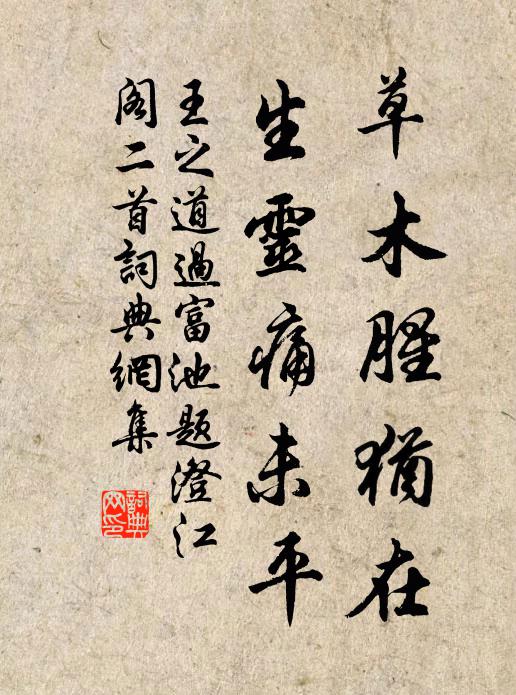 草木腥猶在
生靈痛未平
王之道過富池題澄江
閣二首詞典網集
詞典
网印